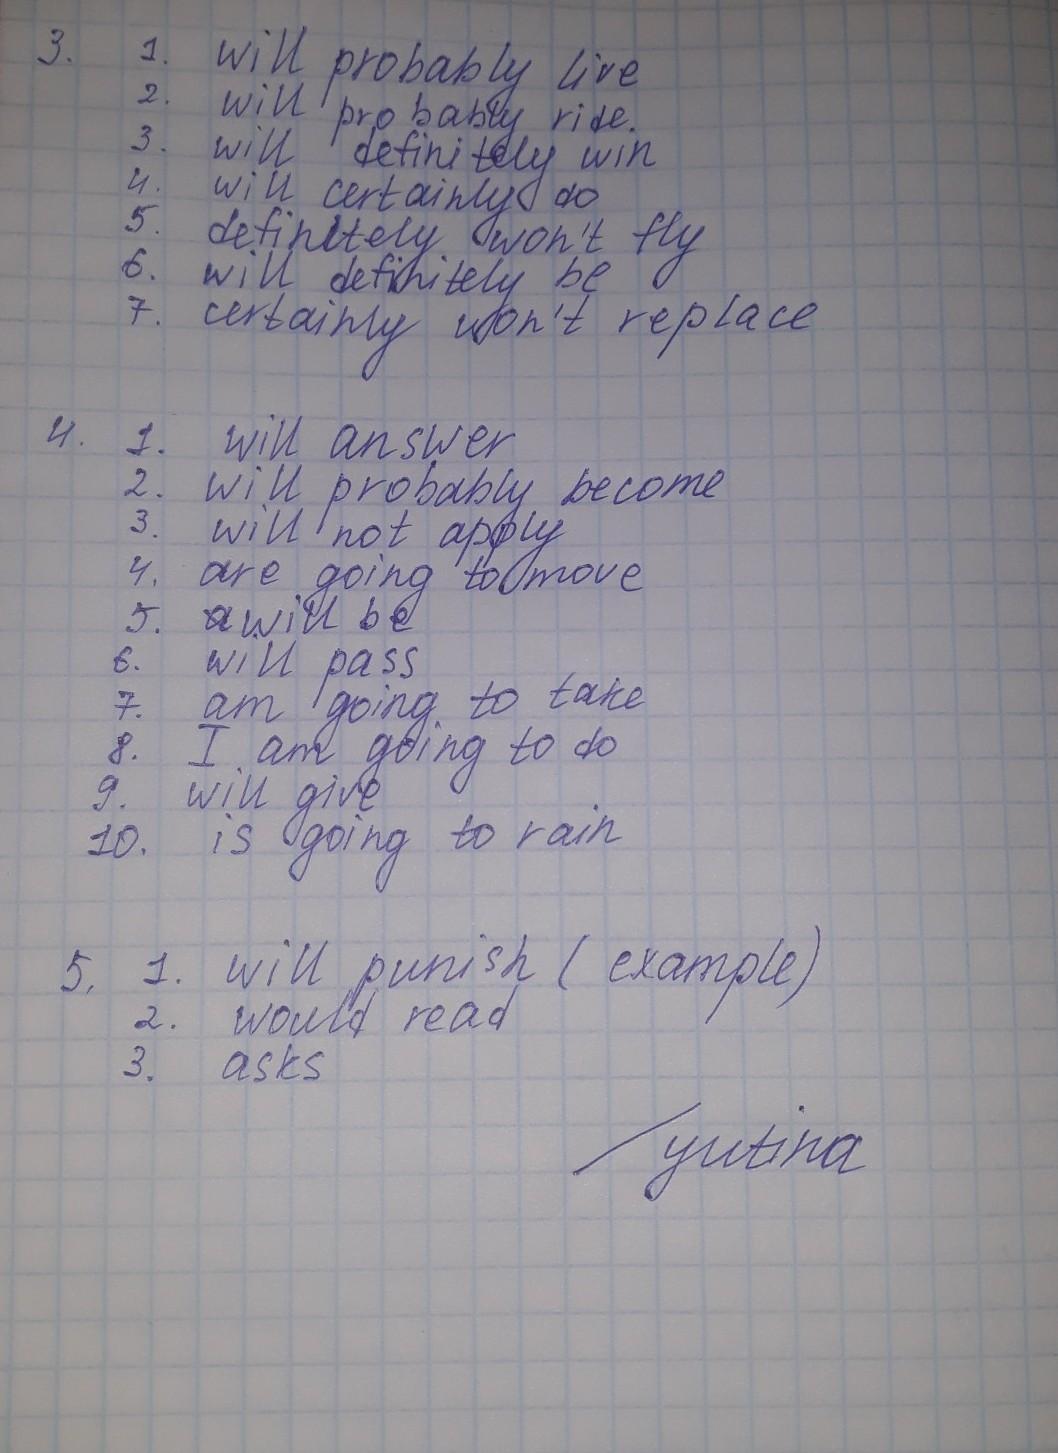 3. 1. will probably live
2. will probably ride.
3. will definitely win
4. will certainly do
5. definitely won't fly
6. will definitely be
7. certainly won't replace
4. 1. will answer
2. will probably become
3. will not apply
4. are going to move
5. will be
6. will pass
7. am going to take
8. I am going to do
9. will give
10. is going to rain
5. 1. will punish (example)
2. would read
3. asks
/yutina